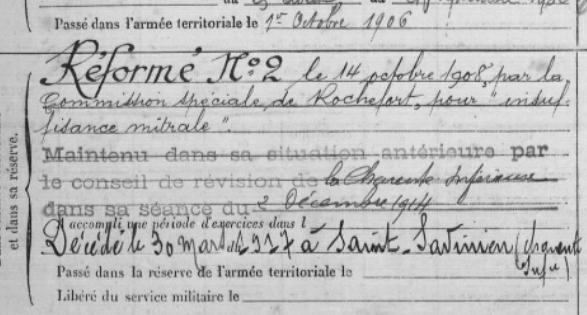 Passé dans l'armée territoriale le 1er Octobre 1906
et dans sa réserve.
Réformé No 2 le 14 octobre 1908, par la
Commission spéciale de Rochefort, pour "insuf-
fisance mitrale".
Maintenu dans sa situation antérieure par
le conseil de révision de la Charente Inférieure
dans sa séance du 2 Décembre 1914
A accompli une période d'exercices dans l
Décédé le 30 Mars 1917 à Saint-Savinien (Charente
Infre)
Passé dans la réserve de l'armée territoriale le
Libéré du service militaire le